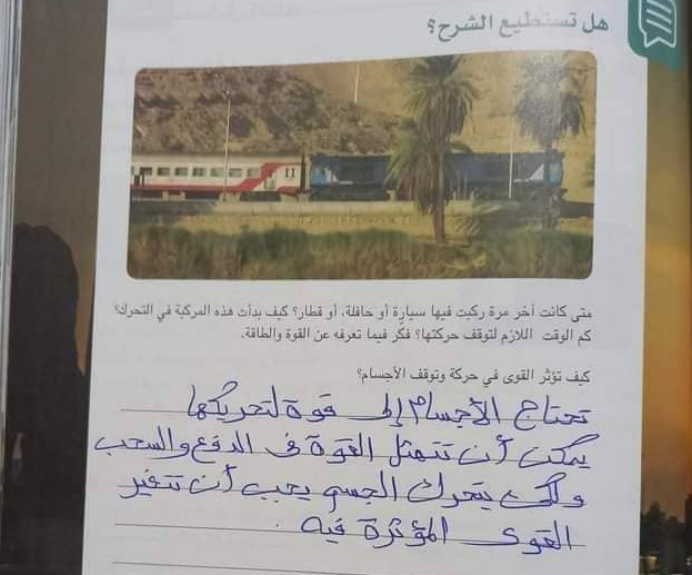 هل تستطيع الشرح؟
متى كانت آخر مرة ركبت فيها سيارة أو حافلة، أو قطار؟ كيف بدأت هذه المركبة في التحرك؟
كم الوقت اللازم لتوقف حركتها؟ فكر فيما تعرفه عن القوة والطاقة.
كيف تؤثر القوى في حركة وتوقف الأجسام؟
تحتاج الأجسام إلى قوة لتحريكها
يمكن أن تتمثل القوة في الدفع والسحب
ولكى يتحرك الجسم يجب أن تتغير
القوى المؤثرة فيه .